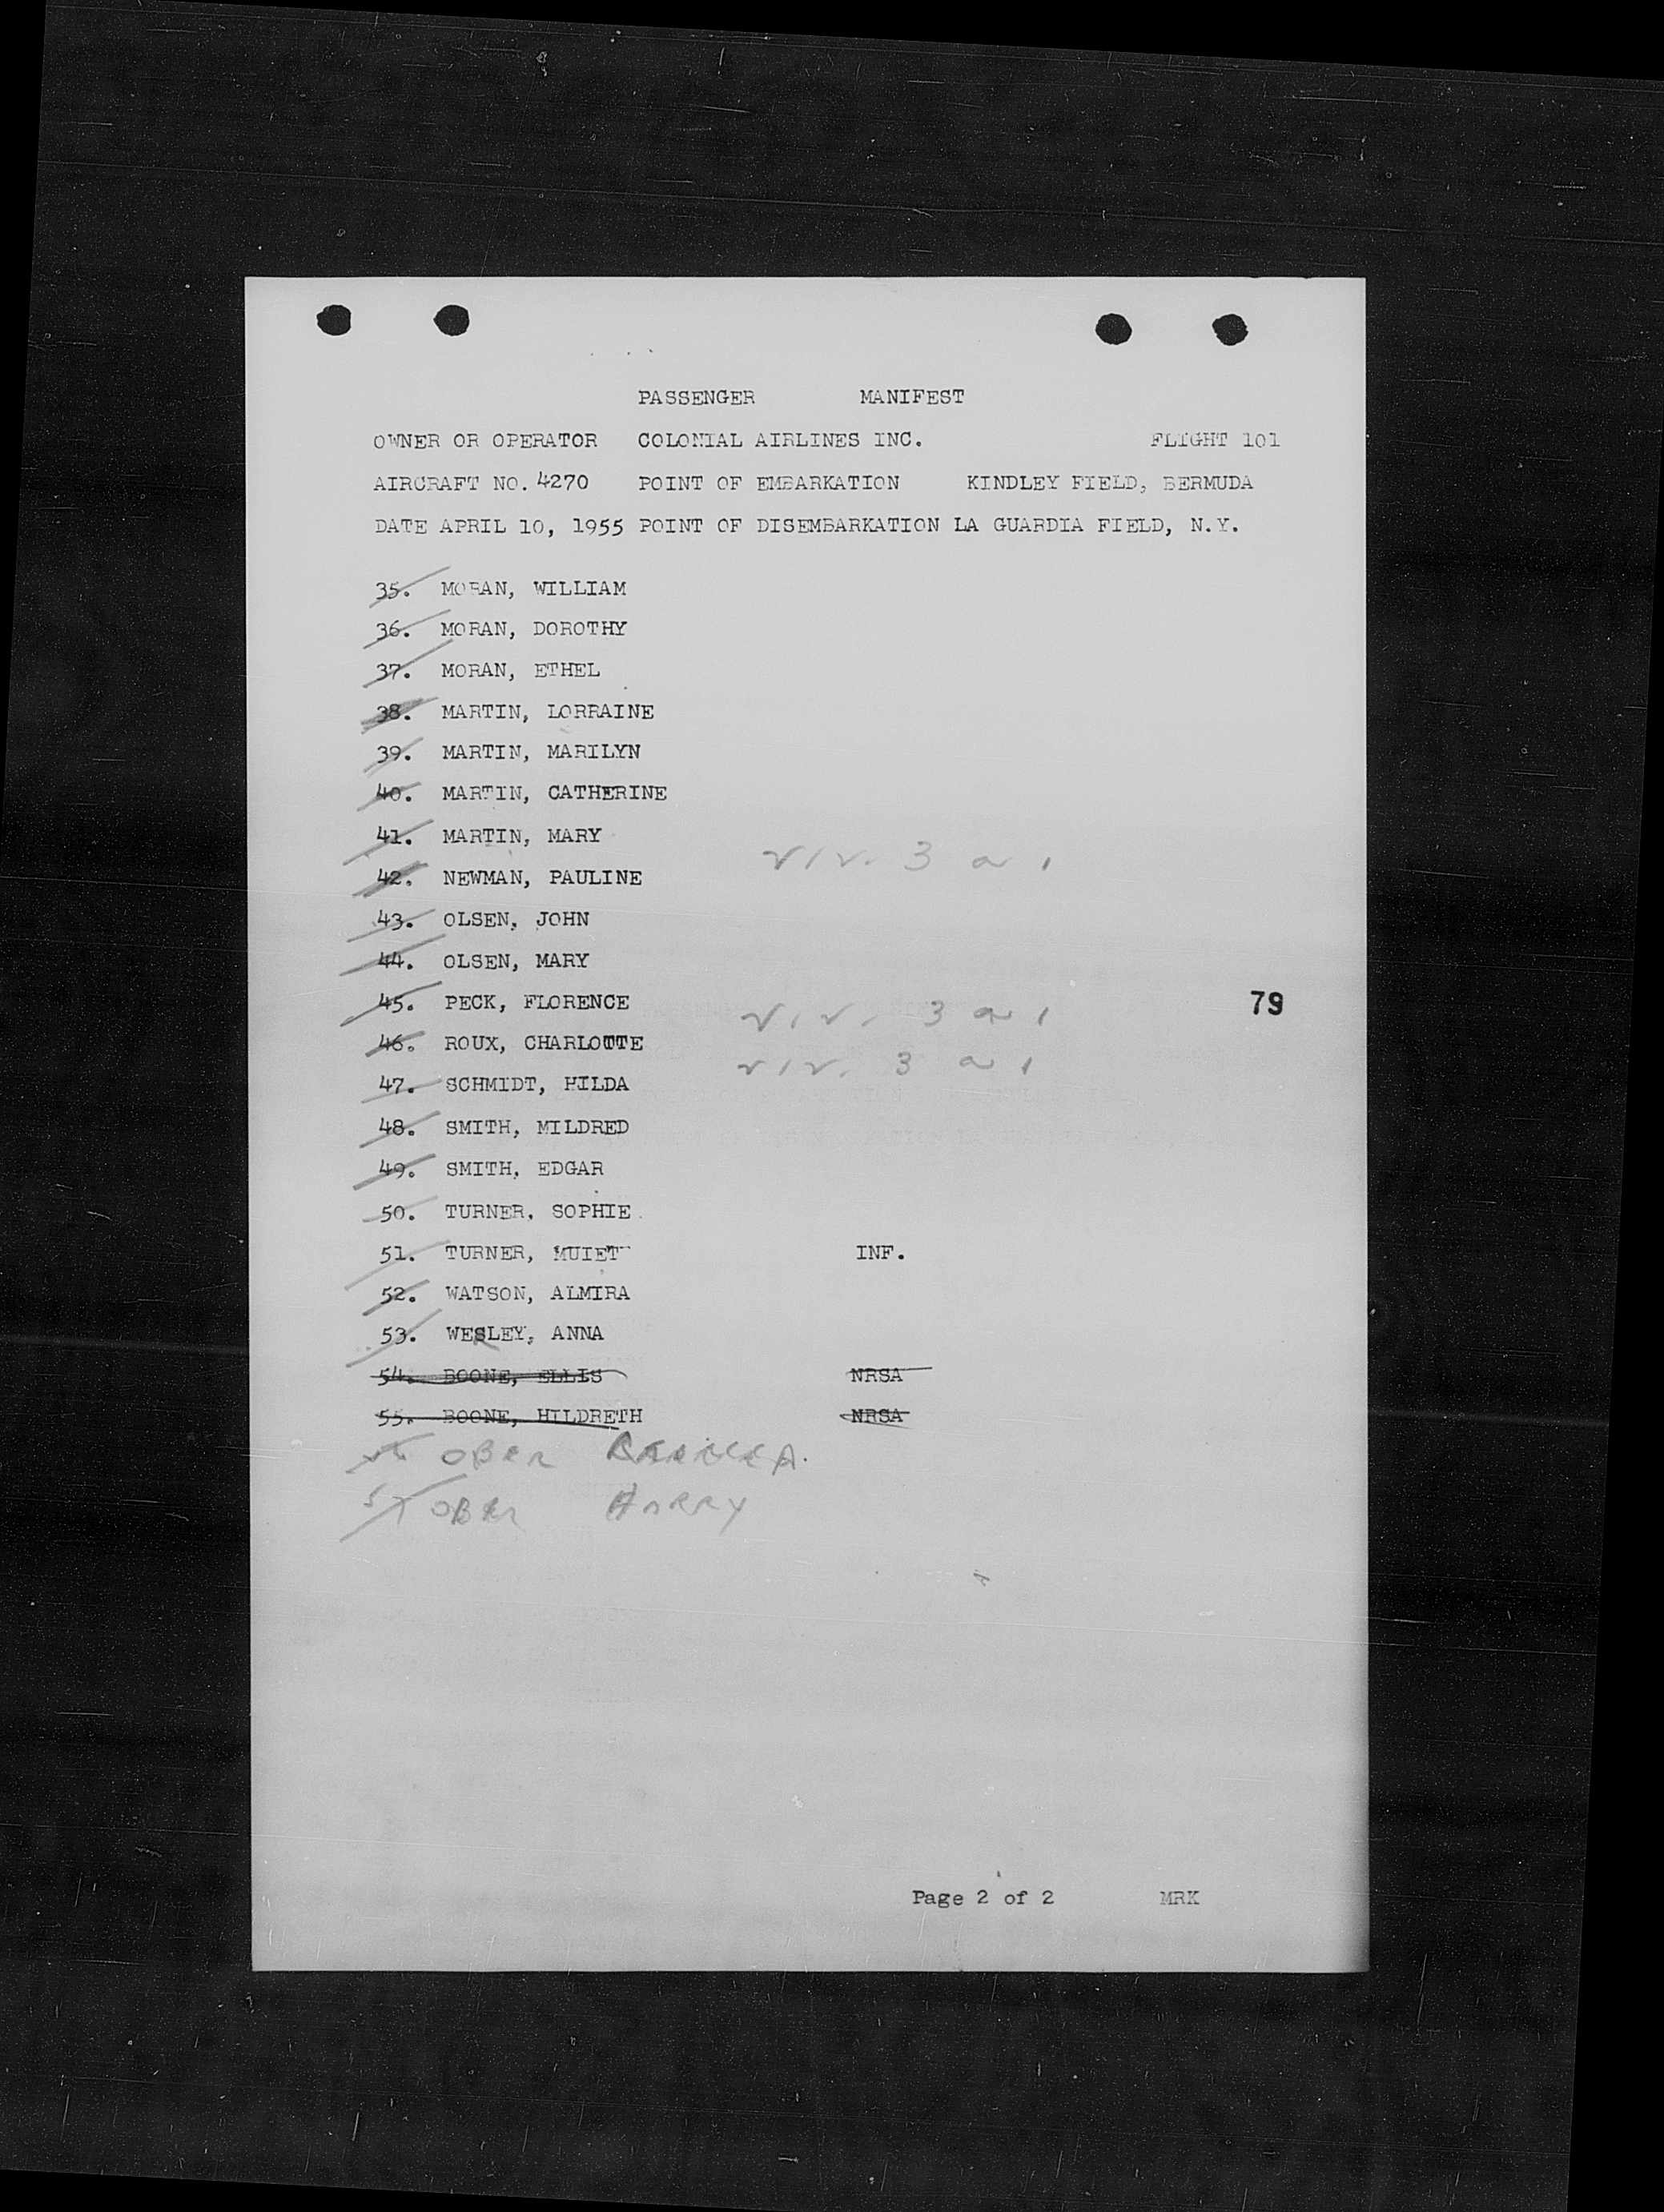 PASSENGER MANIFEST
OWNER OR OPERATOR COLONIAL AIRLINES INC. FLIGHT 101
AIRCRAFT NO. 4270 POINT OF EMBARKATION KINDLEY FIELD, BERMUDA
DATE APRIL 10, 1955 POINT OF DISEMBARKATION LA GUARDIA FIELD, N.Y.
35. MORAN, WILLIAM
36. MORAN, DOROTHY
37. MORAN, ETHEL
38. MARTIN, LORRAINE
39. MARTIN, MARILYN
40. MARTIN, CATHERINE
41. MARTIN, MARY
42. NEWMAN, PAULINE
43. OLSEN, JOHN
44. OLSEN, MARY
45. PECK, FLORENCE 79
46. ROUX, CHARLOTTE
47. SCHMIDT, HILDA
48. SMITH, MILDRED
49. SMITH, EDGAR
50. TURNER, SOPHIE
51. TURNER, INF.
52. WATSON, ALMIRA
53. WESLEY, ANNA
54. BOONE, ELLIS NRSA
55. BOONE, HILDRETH NRSA
OBER
OBER HARRY
Page 2 of 2 MRK